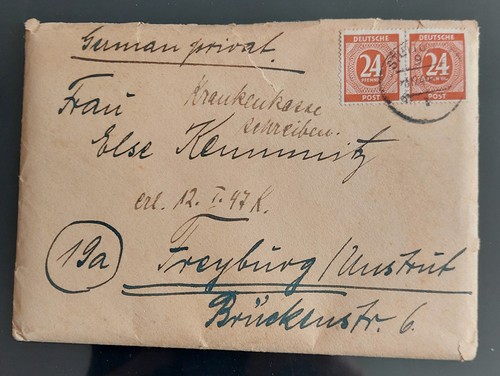 German privat.
DEUTSCHE
24
PFENNIG
POST
DEUTSCHE
24
PFENNIG
POST
Frau
Krankenkasse
schreiben.
Else Kemmnitz
erl. 12. I. 47 K.
19a
Freyburg/Unstrut
Brückenstr. 6.